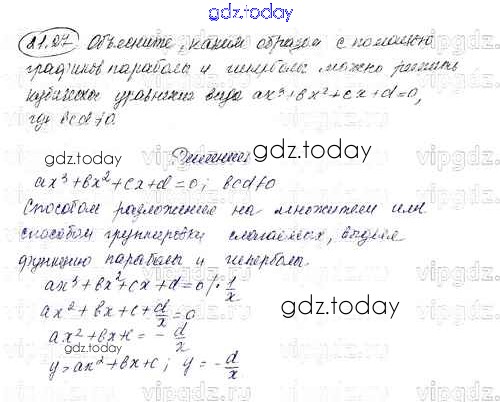 gdz.today
21.27 Объясните, каким образом с помощью
графиков параболы и гиперболы можно решить
кубическое уравнение вида ax³+bx²+cx+d=0,
где bcd≠0.
Решение
gdz.today
ax³+bx²+cx+d=0; bcd≠0
Способом разложения на множители или
способом группировки слагаемых, выделя
функцию параболы и гиперболы.
ax³+bx²+cx+d=0 |· 1/x
ax²+bx+c+d/x=0
gdz.today
ax²+bx+c=-d/x
gdz.today
y=ax²+bx+c; y=-d/x